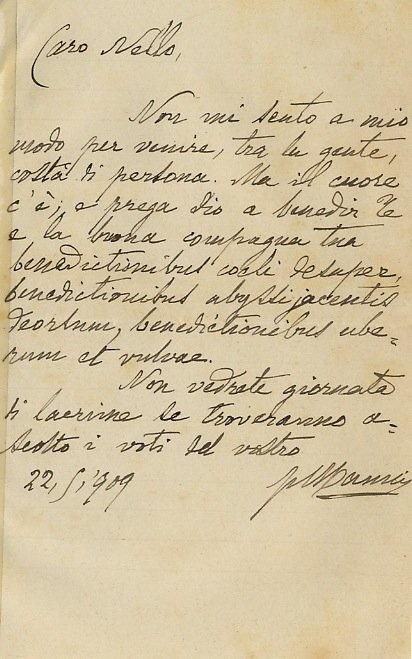 Caro Nello,
Non mi sento a mio
modo per venire, tra la gente,
costà di persona. Ma il cuore
c'è; e prega dio a benedir Te
e la buona compagna tua
benedictionibus coeli desuper,
benedictionibus abyssi jacentis
deorsum, benedictionibus ube-
rum et vulvae.
Non vedrete giornata
di lacrime se troveranno a-
scolto i voti del vostro
22, 5, '909